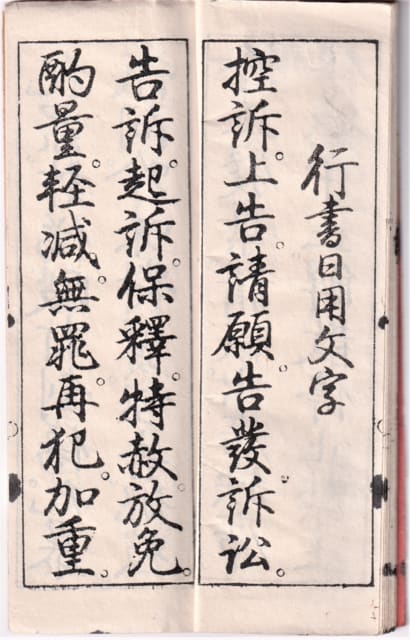 行書日用文字
控訴。上告。請願。告發。訴訟。
告訴。起訴。保釋。特赦。放免。
酌量。軽減。無罪。再犯。加重。